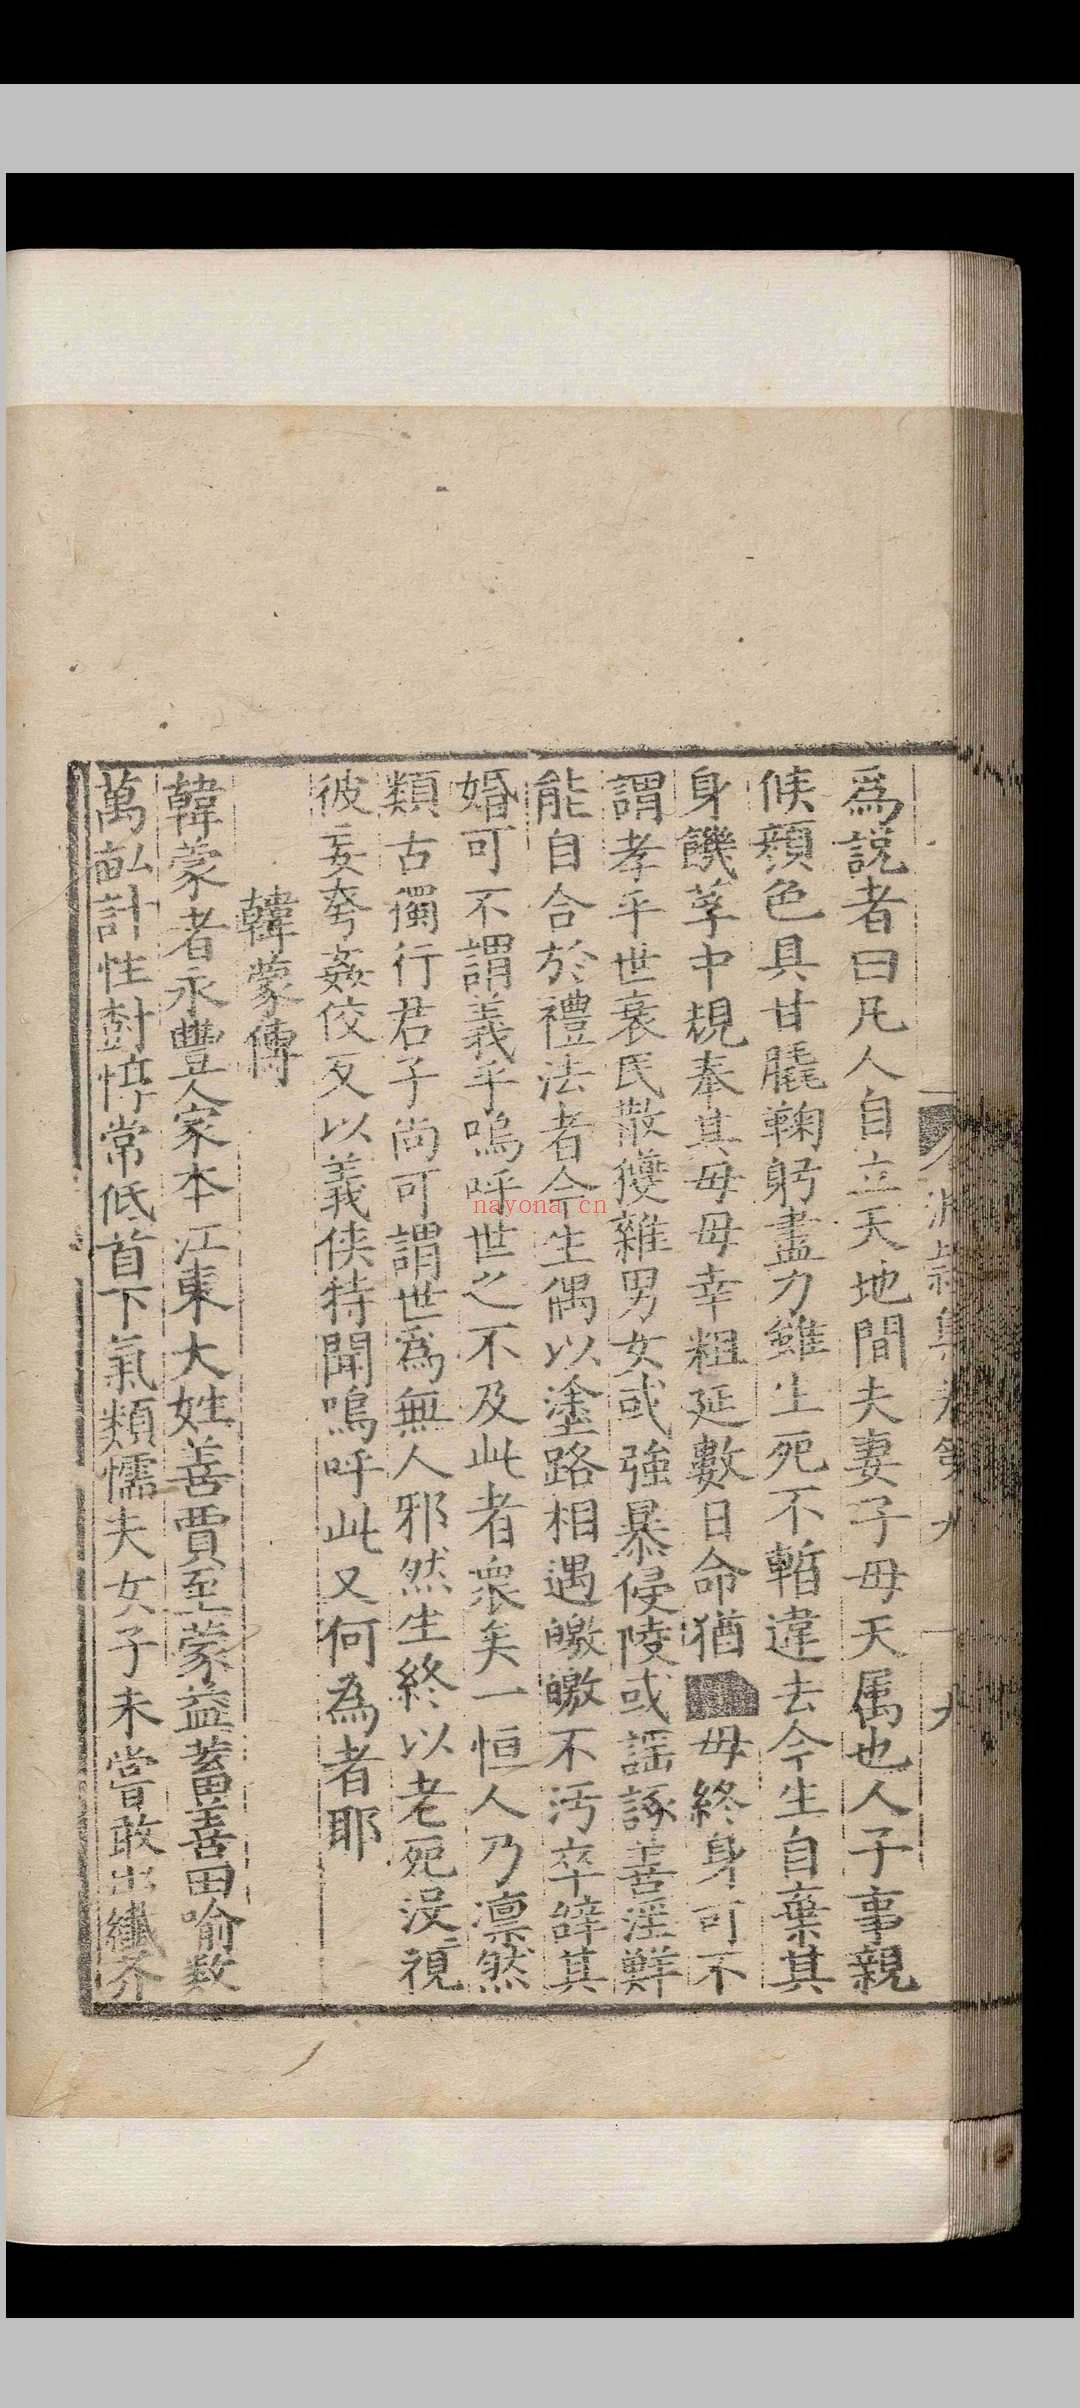 爲說者曰凡人自立天地間夫妻子母天属也人子事親
候顔色具甘膬鞠躬盡力雖生死不暫違去今生自棄其
身饑莩中規奉其母母幸粗延數日命猶母終身可不
謂孝乎世衰民散獲雜男女或強暴侵陵或謡諑善淫鮮
能自合於禮法者今生偶以塗路相遇皦皦不汚卒辭其
婚可不謂義乎嗚呼世之不及此者衆矣一恒人乃凛然
類古獨行君子尚可謂世爲無人邪然生終以老死没視
彼妄夸姦佼反以義侠特聞嗚呼此又何為者耶
韓蒙傳
韓蒙者永豐人家本江東大姓善賈至蒙益蓄善田喻数
萬畝計性常低首下氣類懦夫女子未嘗敢出纖芥
集卷第九
十九
nayona.cn